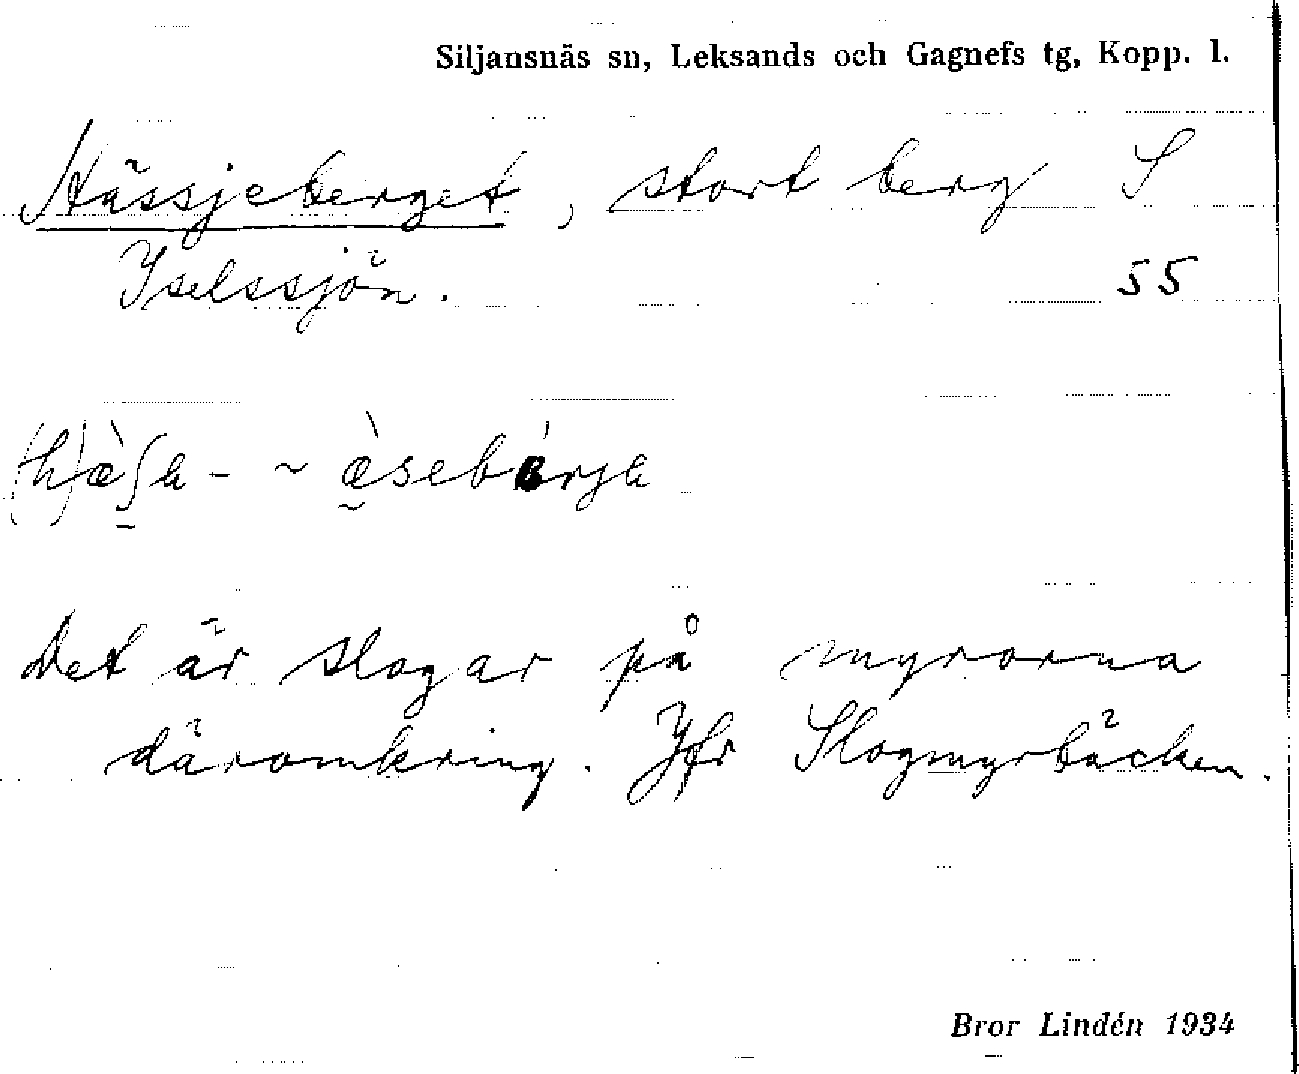 Siljansnäs sn, Leksands och Gagnefs tg, Kopp. l.
Hässjeberget, stort berg S
Yselssjön. 55
(h)æ̀ʃa - ~ æ̀sebærja
Det är slogar på myrorna
däromkring. Jfr Slogmyrbäcken.
Bror Lindén 1934